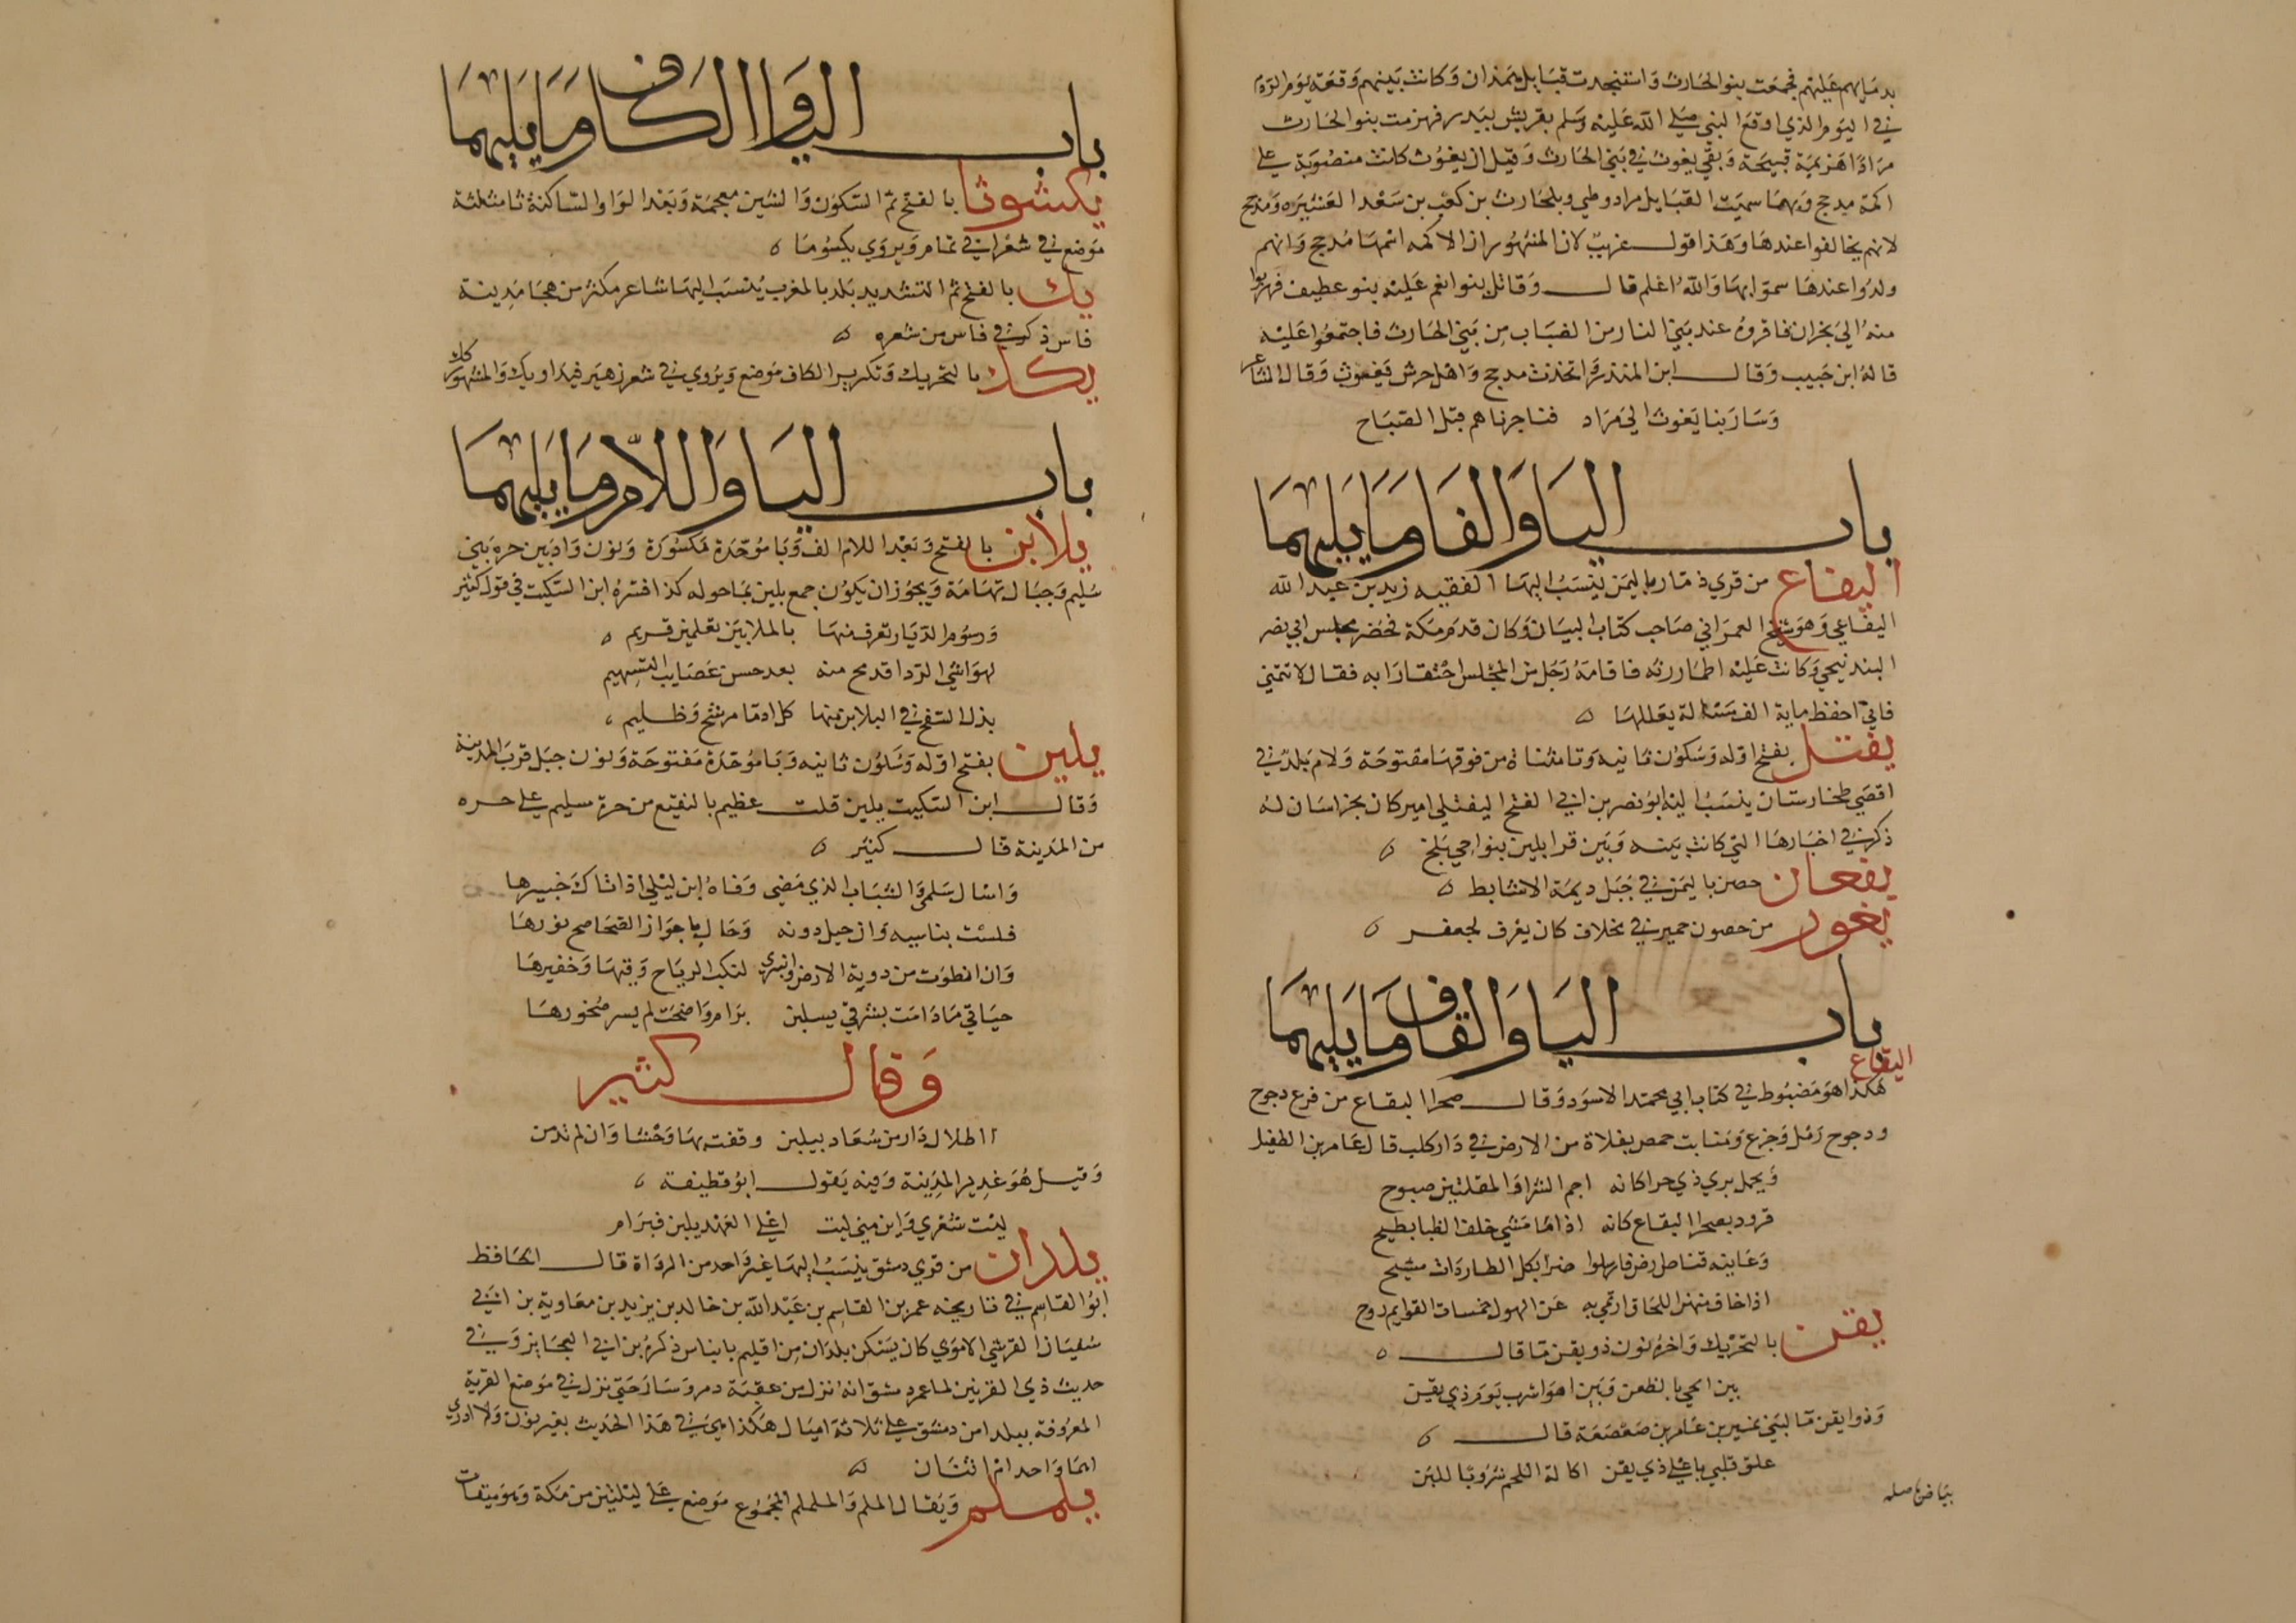 بدمايهم عليهم فجمعت بنوالحارث واستنجدت قبايل همدان وكانت بينهم وقعة يوم الرزم
في اليوم الذي اوقع النبي صلي الله عليه وسلم بقريش ببدر فهزمت بنوالحارث
مرادا هزيمة قبيحة وبقي يغوث في بني الحارث وقيل ان يغوث كانت منصوبة علي
اكمة مدحج وبهما سميت القبايل مراد وطي وبلحارث بن كعب بن سعد العشيره ومدحج
لانهم تحالفوا عندها وهذا قول غريب لان المشهور ان الاكمه اسمها مدحج وانهم
ولدوا عندها سموابها والله اعلم قال وقاتل بنوانعم عليه بنو غطيف فهربوا
منه الي نجران فاقروه عند بني النار من الضباب من بني الحارث فاجتمعوا عليه
قاله ابن حبيب وقال ابن المنذر واتخذت مدحج واهل جرش يغوث وقال الشاعر
وسار بنا يغوث الي مراد فناجزناهم قبل الصباح
باب اليا والفا وما يليهما
اليفاع من قري ذمار باليمن ينسب اليها الفقيه زيد بن عبد الله
اليفاعي وهو شيخ العمراني صاحب كتاب البيان وكان قدم مكة فحضر مجلس ابي نصر
البندنيجي وكانت عليه اطمار رثه فاقامه رجل من المجلس احتقارا به فقال لا تقمني
فاني احفظ ماية الف مسالة بعللها
يفتل بفتح اوله وسكون ثانيه وتا مثناة من فوقها مفتوحة ولام بلد في
اقصي طخارستان ينسب اليه ابونصر بن ابي الفتح اليفتلي امير كان بخراسان له
ذكر في اخبارها التي كانت بينه وبين قراتلين بنواحي بلخ
يفعان حصن باليمن في جبل ديمة الاشابط
يغور من حصون حمير في مخلاف كان يعرف لجعفر
باب اليا والقاف وما يليهما
اليقاع
هكذا هو مضبوط في كتاب ابي محمد الاسود وقال صحرا اليقاع من فرع دجوح
ودجوح رمل وجزع ومنابت حمص بفلاة من الارض في دار كلب قال عامر بن الطفيل
ويحمل بري ذي جرا كانه احم الشوا والمقلتين صبوح
قرود بصحرا اليقاع كانه اذا ما مشي خلف الظبا بطيح
وعاينه قناص ارض فارسلوا ضرا بكل الطاردات مشيح
اذا خاف منهن اللحاق ارتمي به عن الهول حمسات القوايم روح
يقن بالتحريك واخره نون ذو يقن ما قال
بين الحي بالظعن وبين اهوا شرب يوم ذي يقن
وذوا يقن ما لبني نمير بن عامر بن صعصعة قال
علق قلبي باعلي ذي يقن اكالة اللحم شروبا للبن
بياض باصله
باب اليا والكاف وما يليهما
يكشوثا بالفتح ثم السكون والشين معجمة وبعد الواو الساكنة ثا مثلثة
موضع في شعر ابي تمام ويروي يكسوما
يك بالفتح ثم التشديد بلد بالمغرب ينسب اليها شاعر مكثر من هجا مدينة
فاس ذكر في فاس من شعره
يكك بالتحريك وتكرير الكاف موضع ويروي في شعر زهير فيد او يكك والمشهور ركك
باب اليا واللام وما يليهما
يلابن بالفتح وبعد اللام الف وبا موحدة مكسورة ونون واد بين حره بني
سليم وجبال تهامة ويجوز ان يكون جمع يلبن بما حوله كذا فسره ابن السكيت في قول كثير
ورسوم الديار تعرف منها بالملا بين تغلمين فريم
لهواشي الردا قد مح منه بعد حسن عصايب التسهيم
بذل السفح في اليلابن منها كل ادما مرشح وظليم
يلبن بفتح اوله وسكون ثانيه وبا موحدة مفتوحة ونون جبل قرب المدينة
وقال ابن السكيت يلبن قلت عظيم بالنقيع من حرة سليم علي حره
من المدينة قال كثير
واسال سلمي والشباب الذي مضي وفاه ابن ليلي اذ اتاك خبيرها
فلست بناسيه وان حيل دونه وحال باجواز الصحاصح نورها
وان انطوت من دوية الارض وانبري لنكب الرياح وقيها وحفيرها
حياتي ما دامت بشرقي يلبن برام واضحت لم يسر صخورها
وقال كثير
ااطلال دار من سعاد بيلبن وقفت بها وحشا وان لم تدمن
وقيل هو غدير المدينة وفيه يقول ابو قطيفة
ليت شعري واين مني ليت اعلي العهد يلبن فبرام
يلدان من قري دمشق ينسب اليها غير واحد من الرواة قال الحافظ
ابوالقاسم في تاريخه عمر بن القاسم بن عبد الله بن خالد بن يزيد بن معاوية بن ابي
سفيان القرشي الاموي كان يسكن يلدان من اقليم باناس ذكره ابن ابي العجايز وفي
حديث ذي القرنين لما عمر دمشق انه نزل من عقبة دمر وسار حتي نزل في موضع القرية
المعروفة بيلدا من دمشق علي ثلاثة اميال هكذا يجي في هذا الحديث بغير نون ولا ادري
اهما واحد ام اثنان
يلملم ويقال الملم والململم المجموع موضع علي ليلتين من مكة وهو ميقات